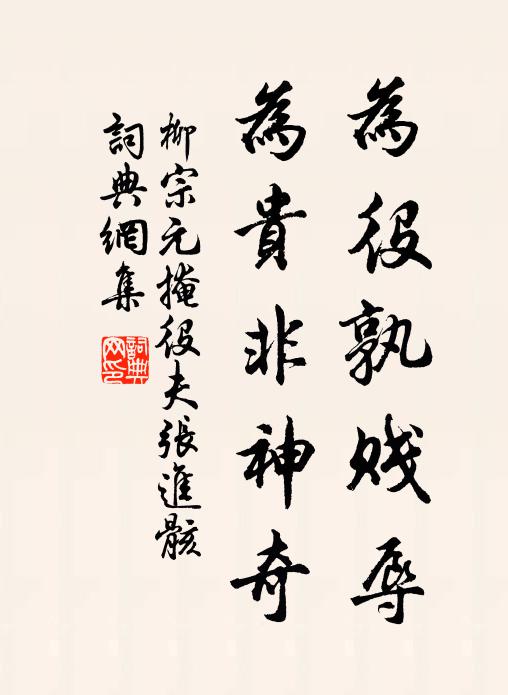 為役孰賤辱
為貴非神奇
柳宗元掩役夫張進骸
詞典網集
詞典網印